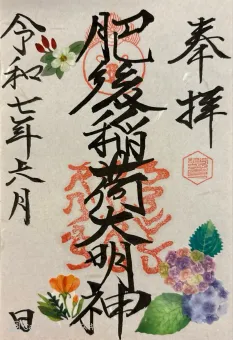 奉拝
肥後稲荷大明神
令和七年六月 日